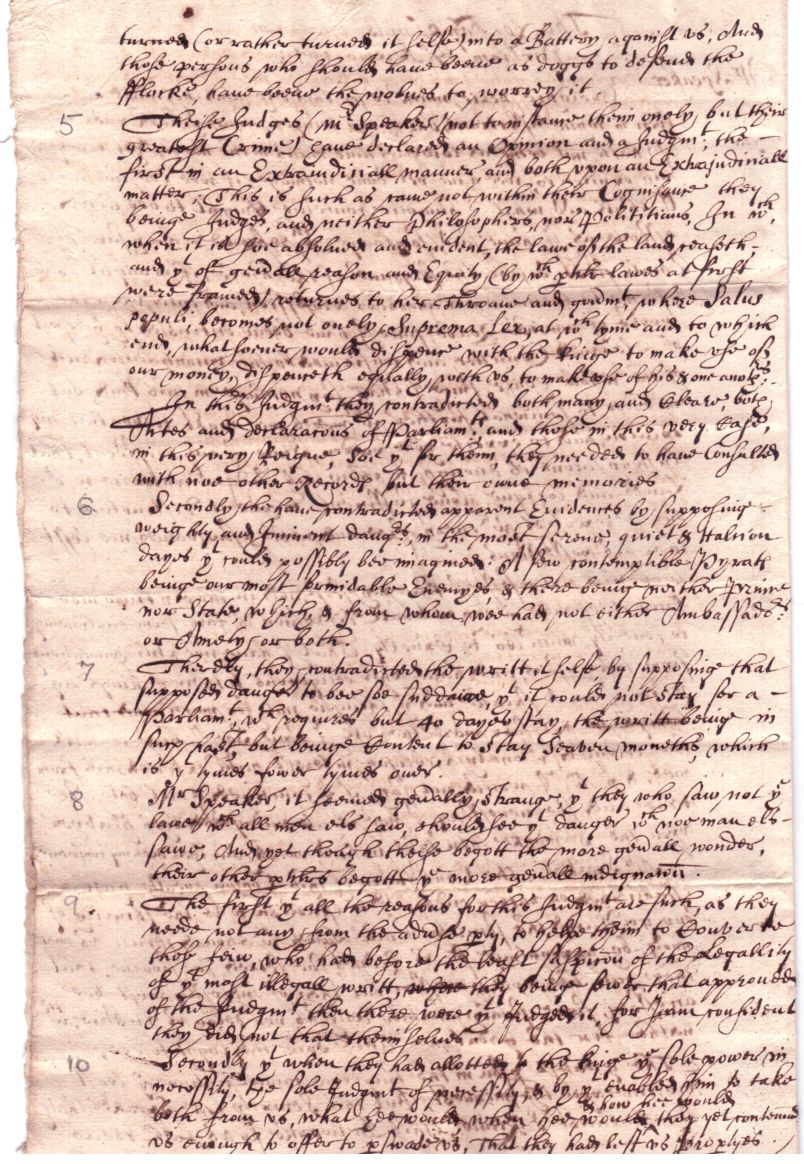 turned (or rather turned it selfe) into a Battery against vs, And
those persons who should have beene as doggs to defend the
fflocke, have beene the wolves to worrey it.
5 Theise Judges (Mr Speaker) not to instance them onely, but their
greatest Crime) have declared an Opinion and a Judgmt, the
first in an Extraudiciall manner and both vpon an Extrajudiciall
matter, This is such as came not within their Cognisance they
beinge Judges, and neither Philosophers, nor Polititions, In wch,
when it is soe absolued and euident, the lawe of the land ceaseth,
and yt of genall reason and Equity (by wch ptiler lawes at first
were framed) returnes to her Throane and govmt, where Salus
populi, becomes not onely Suprema Lex, at wch tyme and to which
end, what soever would dispence with the kinge to make vse of
our money, dispenceth equally with vs, to make vse of his & one anothrs.
In this Judgmt they contradicted both many and Cleare, both
Actes and declaracons of Parliamt, and those in this very Case,
in this very Reigne, Soe yt for them, they needed to have Consulted
with noe other Record, but their owne memories
6 Secondly the have contradicted apparent Euidences by supposinge
weighty and Iminent daungrs, in the most serene, quiet & Haltion
dayes yt could possibly bee imagined: A few contemptible Pyrats
beinge our most formidable Enemyes, & there beinge neither Prince
nor State, which, & from whom, wee had not either Ambassadrs
or Amety, or both.
7 Theirdly, they contradicted the writt it selfe, by supposinge that
supposed danger to bee soe suddaine, yt it could not stay for a
Parliamt, wch requires but 40 dayes stay, the writt beinge in
such hast, but beinge Content to Stay Seaven moneths, which
is yt tymes fower tymes over.
8 Mr Speaker, it seemed genally strange, yt they who saw not ye
lawe wch all men els saw, should see yt danger wch noe man els
sawe, And yet though theise begott the more genall wonder,
their other ptilers begott ye more genall indignation.
9. The first yt all the reasons for this Judgmt are such, as they
neede not any from the aduse pty, to helpe them to Converte
those few, who had before the least suspicon of the Legallity
of yt most illegall writt, where they beinge fewer that approued
of the Judgmt then there were yt Judged it, for I am confident
they did not that themselues.
10 Secondly yt when they had allotted to the kinge ye sole power in
necessity, the sole Judgmt of necessity, & by yt enabled him to take
both from vs, what hee would, when hee would, & how hee would they yet contemned
vs enough to offer to pswade vs, That they had left vs propties.